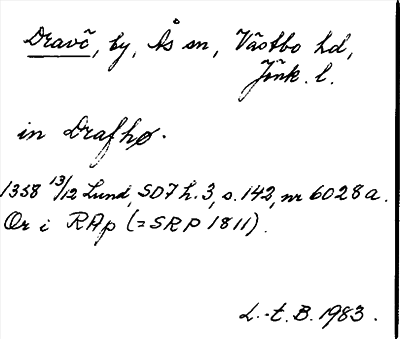 Dravö, by, Ås sn, Västbo hd,
Jönk. l.
in Drafhø.
1358 13/12 Lund, SD7 h. 3, s. 142, nr 6028a.
Or i RAp (= SRP 1811).
L.-t. B. 1983.